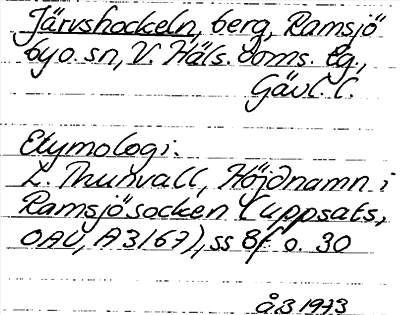 Järvshockeln, berg, Ramsjö
by o. sn, V. Häls. doms. lg.,
Gävl. l.
Etymologi.
L. Thunvall, Höjdnamn i
Ramsjö socken (uppsats,
OAU, A3167), ss 8f o. 30
å.B 1973